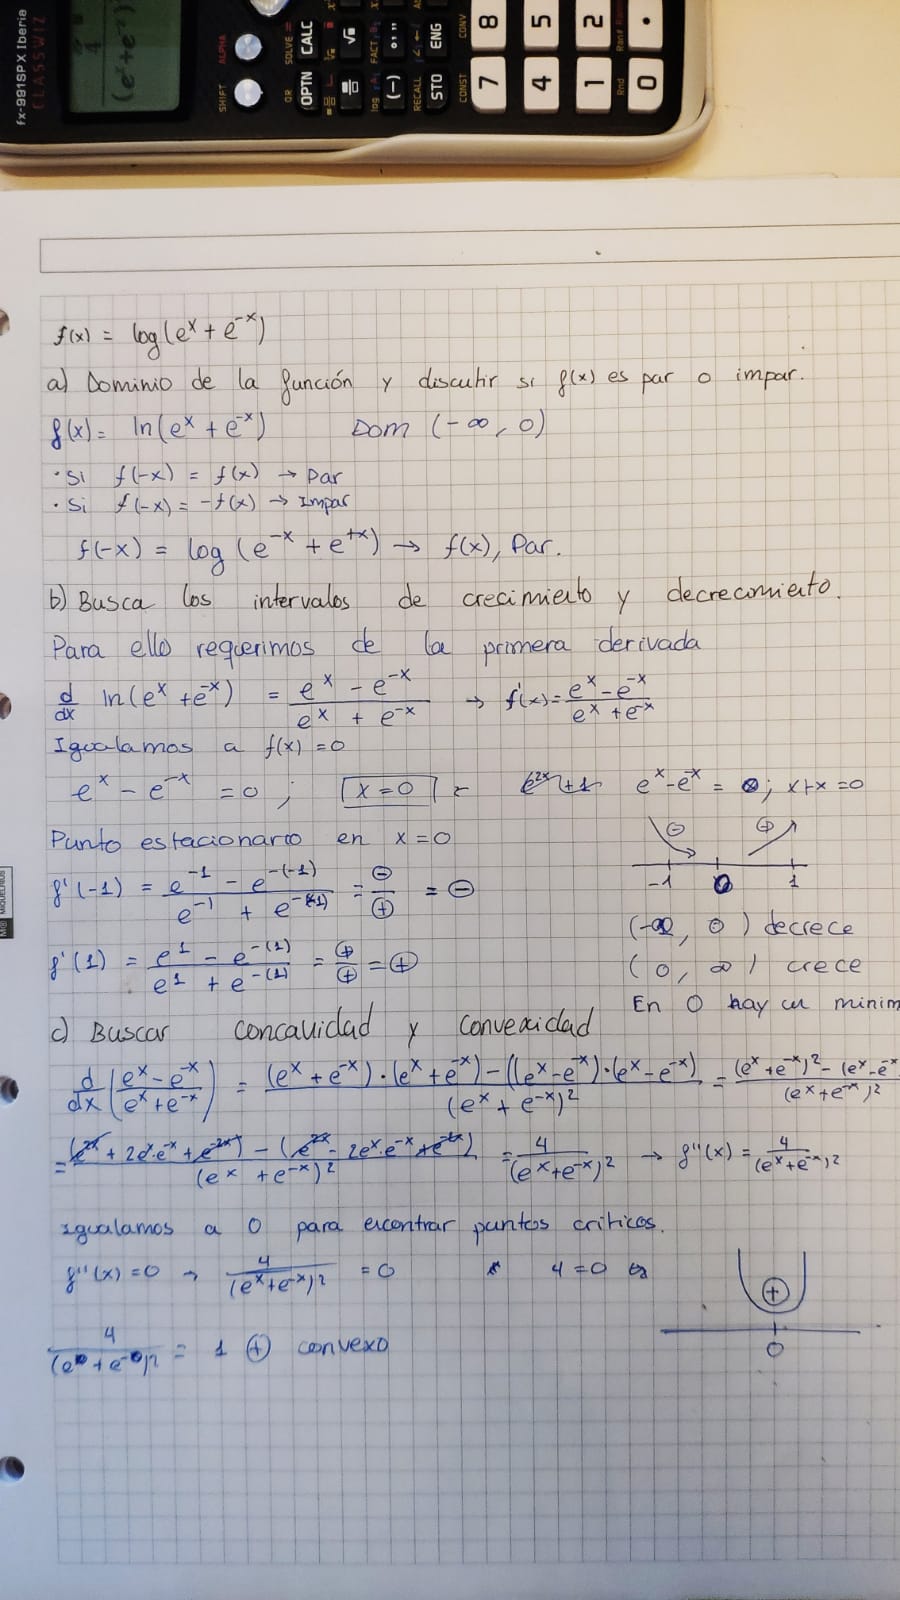 fx-991SPX Iberia
CLASSWIZ
4
(eˣ+e⁻ˣ)
SHIFT ALPHA
QR SOLVE =
OPTN CALC
log FACT
(-) °'"
RECALL
STO ENG
CONST CONV
7 8
4 5
1 2
Rnd Ran#
0 •
f(x) = log(eˣ + e⁻ˣ)
a) Dominio de la función y discutir si f(x) es par o impar.
f(x) = ln(eˣ + e⁻ˣ) Dom (-∞, 0)
· Si f(-x) = f(x) → Par
· Si f(-x) = -f(x) → Impar
f(-x) = log(e⁻ˣ + e⁺ˣ) → f(x), Par.
b) Busca los intervalos de crecimiento y decrecimiento.
Para ello requerimos de la primera derivada
d/dx ln(eˣ + e⁻ˣ) = (eˣ - e⁻ˣ)/(eˣ + e⁻ˣ) → f'(x) = (eˣ - e⁻ˣ)/(eˣ + e⁻ˣ)
Igualamos a f(x) = 0
eˣ - e⁻ˣ = 0 ; x = 0 e²ˣ + 1 eˣ - e⁻ˣ = 0 ; x + x = 0
Punto estacionario en x = 0
⊖ ⊕
-1 0 1
f'(-1) = (e⁻¹ - e⁻⁽⁻¹⁾)/(e⁻¹ + e⁻⁽⁻¹⁾) = ⊖/⊕ = ⊖
(-∞, 0) decrece
f'(1) = (e¹ - e⁻⁽¹⁾)/(e¹ + e⁻⁽¹⁾) = ⊕/⊕ = ⊕
(0, ∞) crece
En 0 hay un minim
c) Buscar concavidad y convexidad
d/dx ((eˣ - e⁻ˣ)/(eˣ + e⁻ˣ)) = ((eˣ + e⁻ˣ)·(eˣ + e⁻ˣ) - ((eˣ - e⁻ˣ)·(eˣ - e⁻ˣ))/(eˣ + e⁻ˣ)² = ((eˣ + e⁻ˣ)² - (eˣ - e⁻ˣ/(eˣ + e⁻ˣ)²
= ((e²ˣ + 2eˣ·e⁻ˣ + e⁻²ˣ) - (e²ˣ - 2eˣ·e⁻ˣ + e⁻²ˣ))/(eˣ + e⁻ˣ)² = 4/(eˣ + e⁻ˣ)² → f''(x) = 4/(eˣ + e⁻ˣ)²
Igualamos a 0 para encontrar puntos críticos.
f''(x) = 0 → 4/(eˣ + e⁻ˣ)² = 0 4 = 0
⊕
0
4/(e⁰ + e⁻⁰)² = 1 ⊕ convexo
MIQUELRIUS